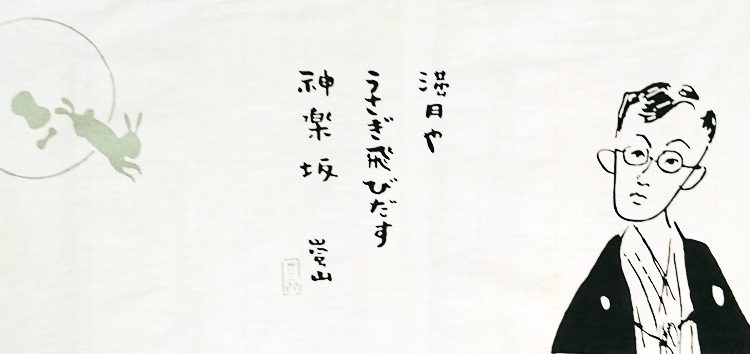 満月や
うさぎ飛びだす
神楽坂